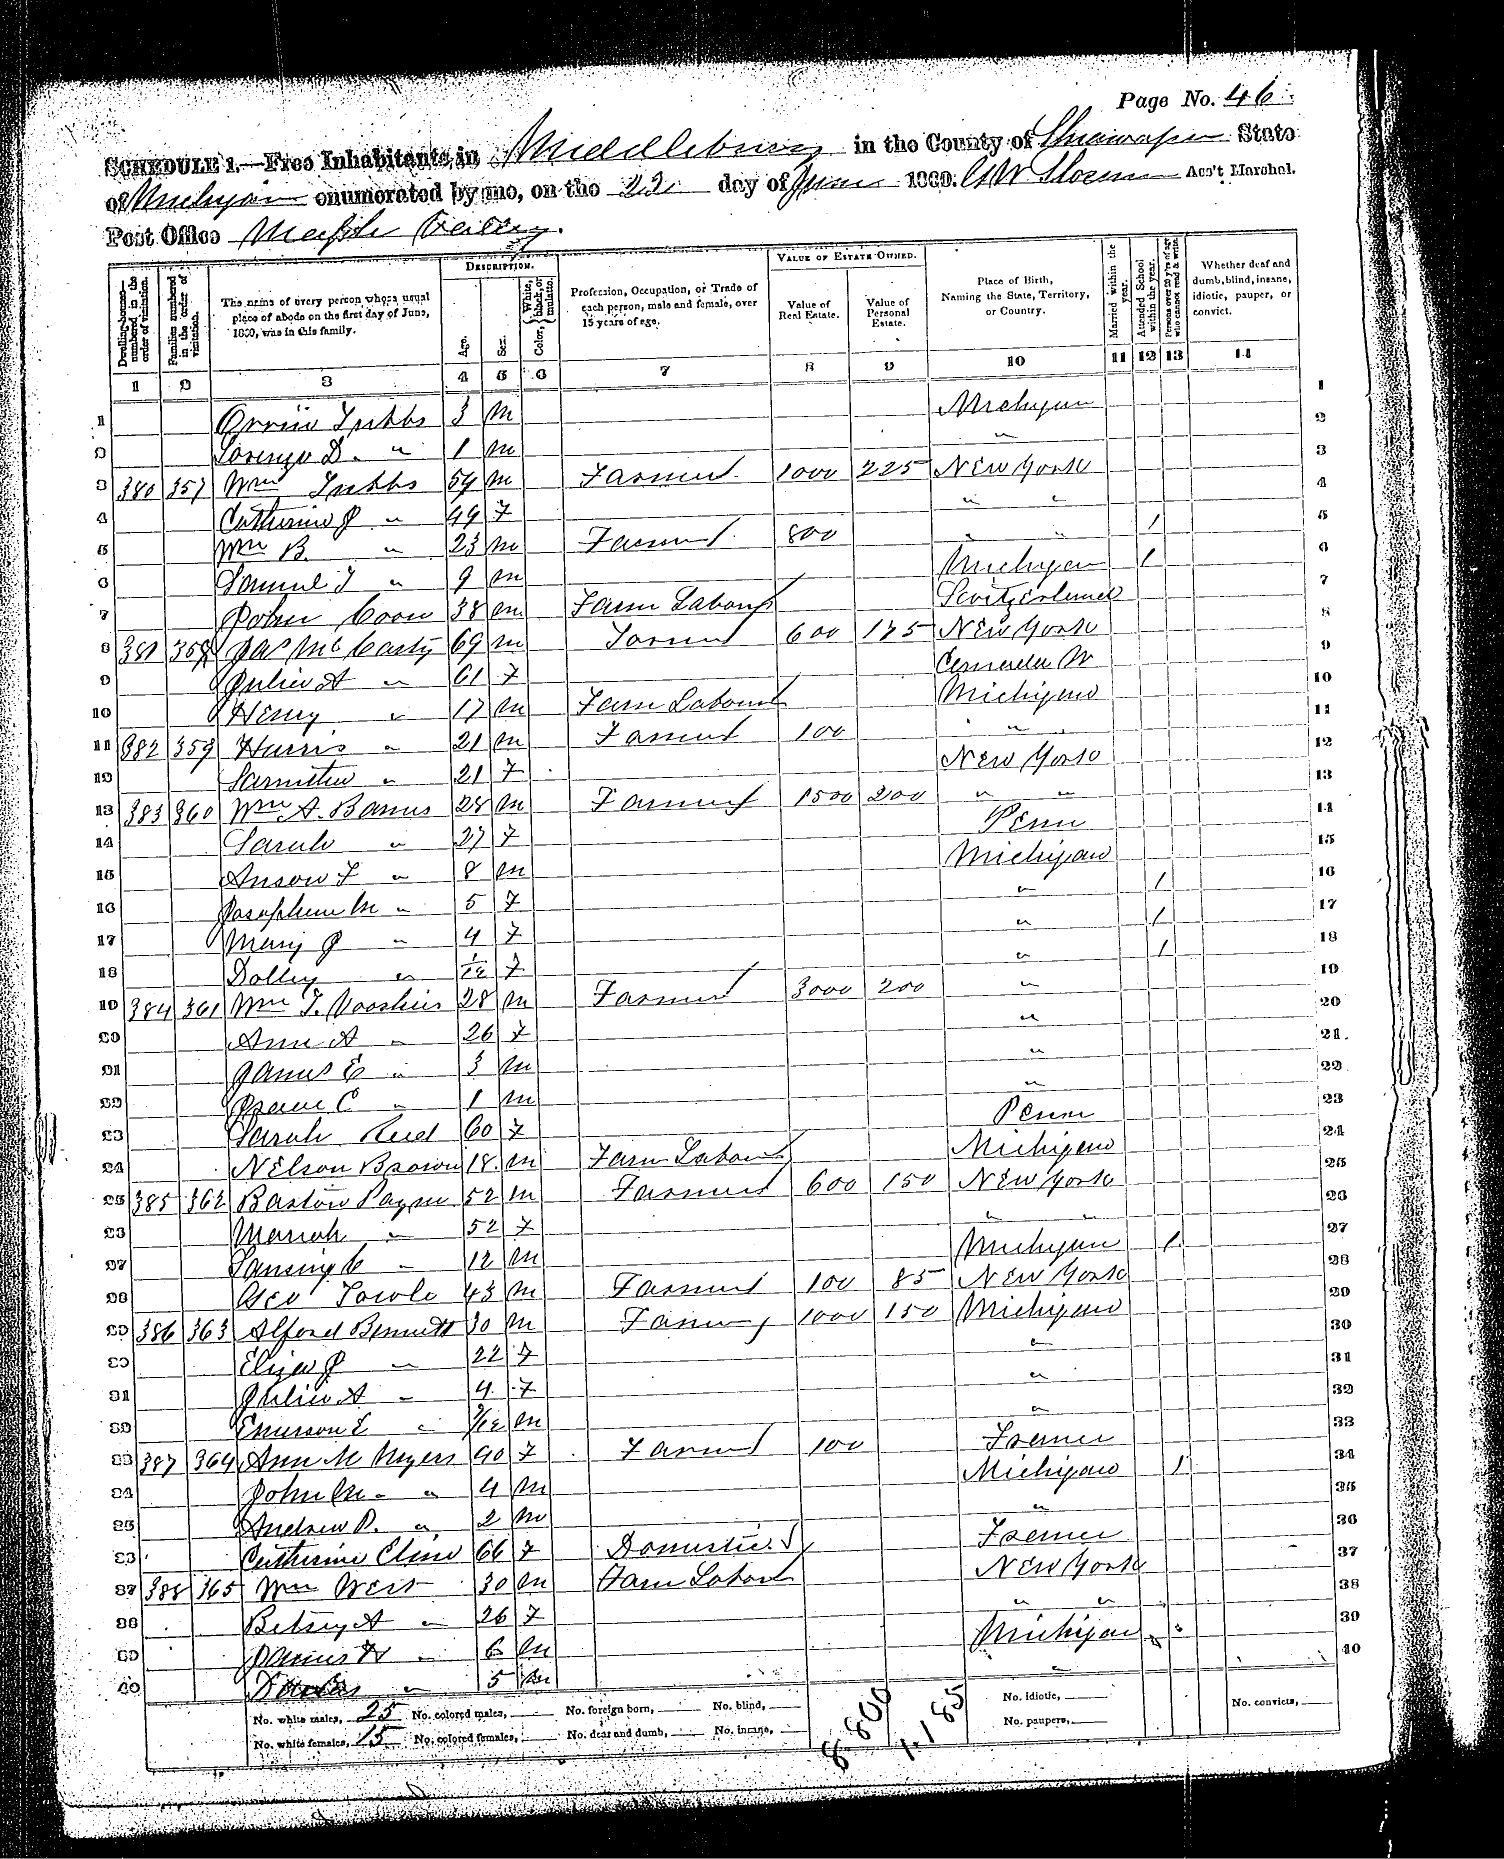 Page No. 46
SCHEDULE 1.—Free Inhabitants in Middlebury in the County of Shiawassee State
of Michigan enumerated by me, on the 22 day of June 1860. Ass't Marshal.
Post Office Maple Valley.
Dwelling-houses—numbered in the order of visitation.
Families numbered in the order of visitation.
The name of every person whose usual place of abode on the first day of June, 1860, was in this family.
DESCRIPTION.
Age.
Sex.
Color, White, black, or mulatto.
Profession, Occupation, or Trade of each person, male and female, over 15 years of age.
VALUE OF ESTATE OWNED.
Value of Real Estate.
Value of Personal Estate.
Place of Birth, Naming the State, Territory, or Country.
Married within the year.
Attended School within the year.
Persons over 20 y'rs of age who cannot read & write.
Whether deaf and dumb, blind, insane, idiotic, pauper, or convict.
1 2 3 4 5 6 7 8 9 10 11 12 13 14
1 Orrin Tubbs 3 m Michigan 1
2 Lorenzo D. " 1 m " 2
3 380 357 Wm Tubbs 54 m Farmer 1000 225 New York 3
4 Catherine J " 49 f " " 4
5 Wm B. " 23 m Farmer 800 " " 1 5
6 Samuel T " 9 m Michigan 1 6
7 John Coon 38 m Farm Labour Switzerland 7
8 381 358 Jas McCarty 69 m Farmer 600 175 New York 8
9 Julia A " 61 f Canada W 9
10 Henry " 17 m Farm Labour Michigan 10
11 382 359 Harris " 21 m Farmer 100 " " 11
12 Samitha " 21 f New York 12
13 383 360 Wm A. Barnes 28 m Farmer 1500 200 " " 13
14 Sarah " 27 f Penn 14
15 Anson F " 8 m Michigan 15
16 Josephine M " 5 f " 1 16
17 Mary J " 4 f " 1 17
18 Dolley " 1/12 f " 1 18
19 384 361 Wm T. Voorhies 28 m Farmer 3000 200 " 19
20 Ann A " 26 f " 20
21 James E " 3 m " 21
22 Isaac C " 1 m " 22
23 Sarah Reed 60 f Penn 23
24 Nelson Brown 18 m Farm Labour Michigan 24
25 385 362 Barton Payne 52 m Farmer 600 150 New York 25
26 Mariah " 52 f " " 26
27 Lansing C " 12 m Michigan 1 27
28 Geo Towle 43 m Farmer 100 85 New York 28
29 386 363 Alfred Bennett 30 m Farmer 1000 150 Michigan 29
30 Eliza J " 22 f " 30
31 Julia A " 4 f " 31
32 Emerson E " /12 m " 32
33 387 364 Ann M Myers 40 f Farmer 100 France 33
34 John M " 4 m Michigan 1 34
35 Andrew P. " 2 m " 35
36 Catherine Cline 66 f Domestic France 36
37 388 365 Wm West 30 m Farm Labour New York 37
38 Betsey A " 26 f " " 38
39 James H " 6 m Michigan 39
40 " 5 m " 40
No. white males, 25 No. colored males, No. foreign born, No. blind, No. idiotic, No. convicts,
No. white females, 15 No. colored females, No. deaf and dumb, No. insane, No. paupers,
8.800 1.185